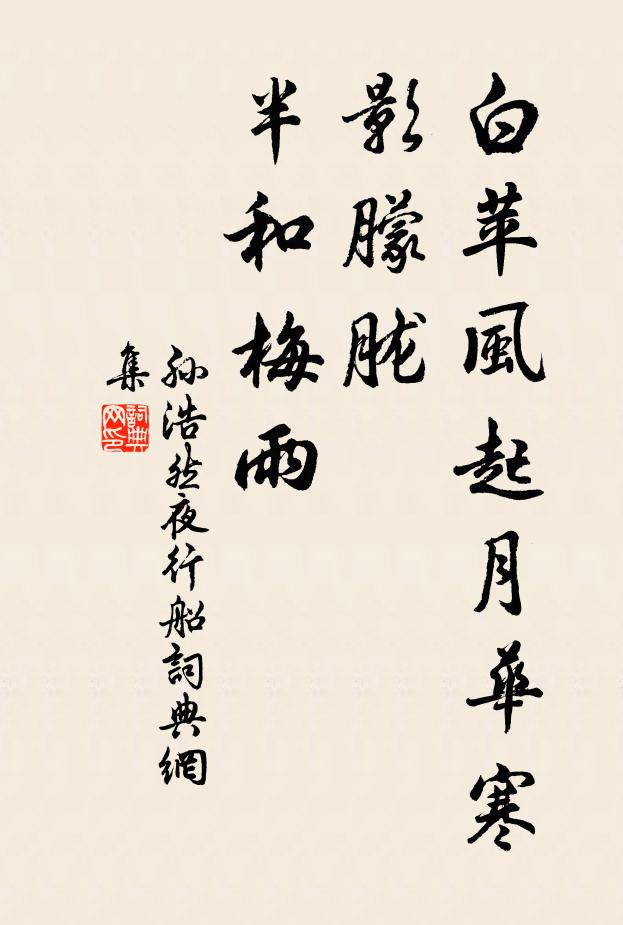 白苹風起月華寒
影朦朧
半和梅雨
孫浩然夜行船詞典網
集
詞典网印